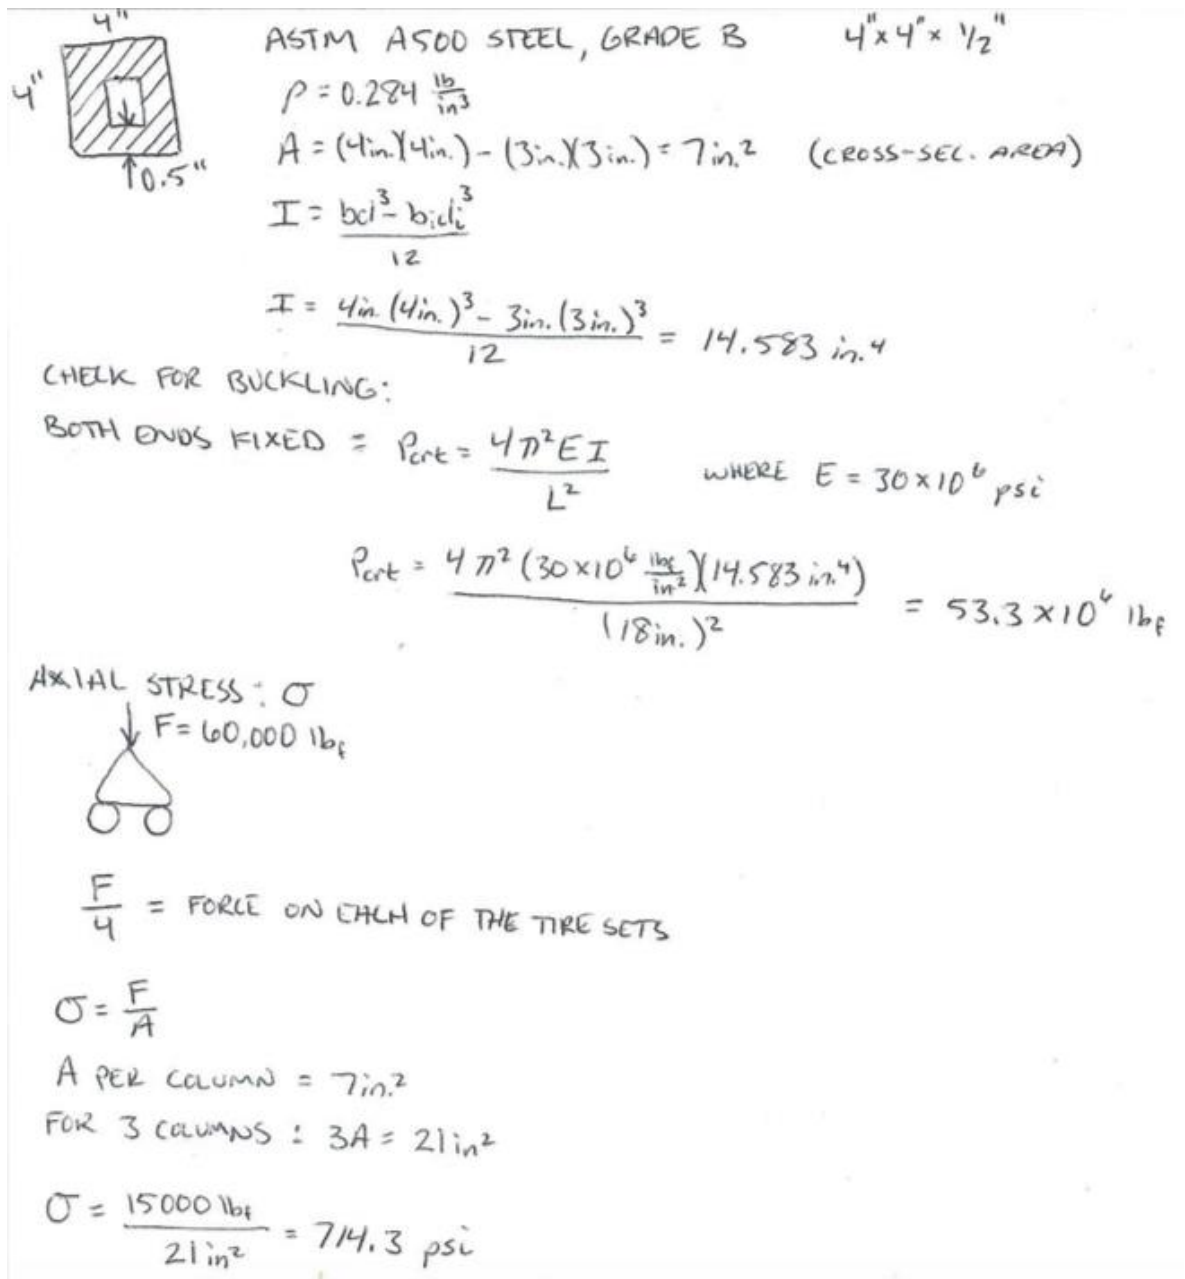 4"
ASTM A500 STEEL, GRADE B 4"x4"x 1/2"
4"
ρ = 0.284 lb/in³
A = (4in.)(4in.) - (3in.)(3in.) = 7in.² (CROSS-SEC. AREA)
0.5"
I = bd³ - bᵢdᵢ³ / 12
I = 4in.(4in.)³ - 3in.(3in.)³ / 12 = 14.583 in.⁴
CHECK FOR BUCKLING:
BOTH ENDS FIXED = Pcrt = 4π²EI / L² WHERE E = 30×10⁶ psi
Pcrt = 4π²(30×10⁶ lbf/in²)(14.583 in.⁴) / (18in.)² = 53.3×10⁶ lbf
AXIAL STRESS: σ
F = 60,000 lbf
F/4 = FORCE ON EACH OF THE TIRE SETS
σ = F/A
A PER COLUMN = 7in.²
FOR 3 COLUMNS : 3A = 21in²
σ = 15000 lbf / 21in² = 714.3 psi